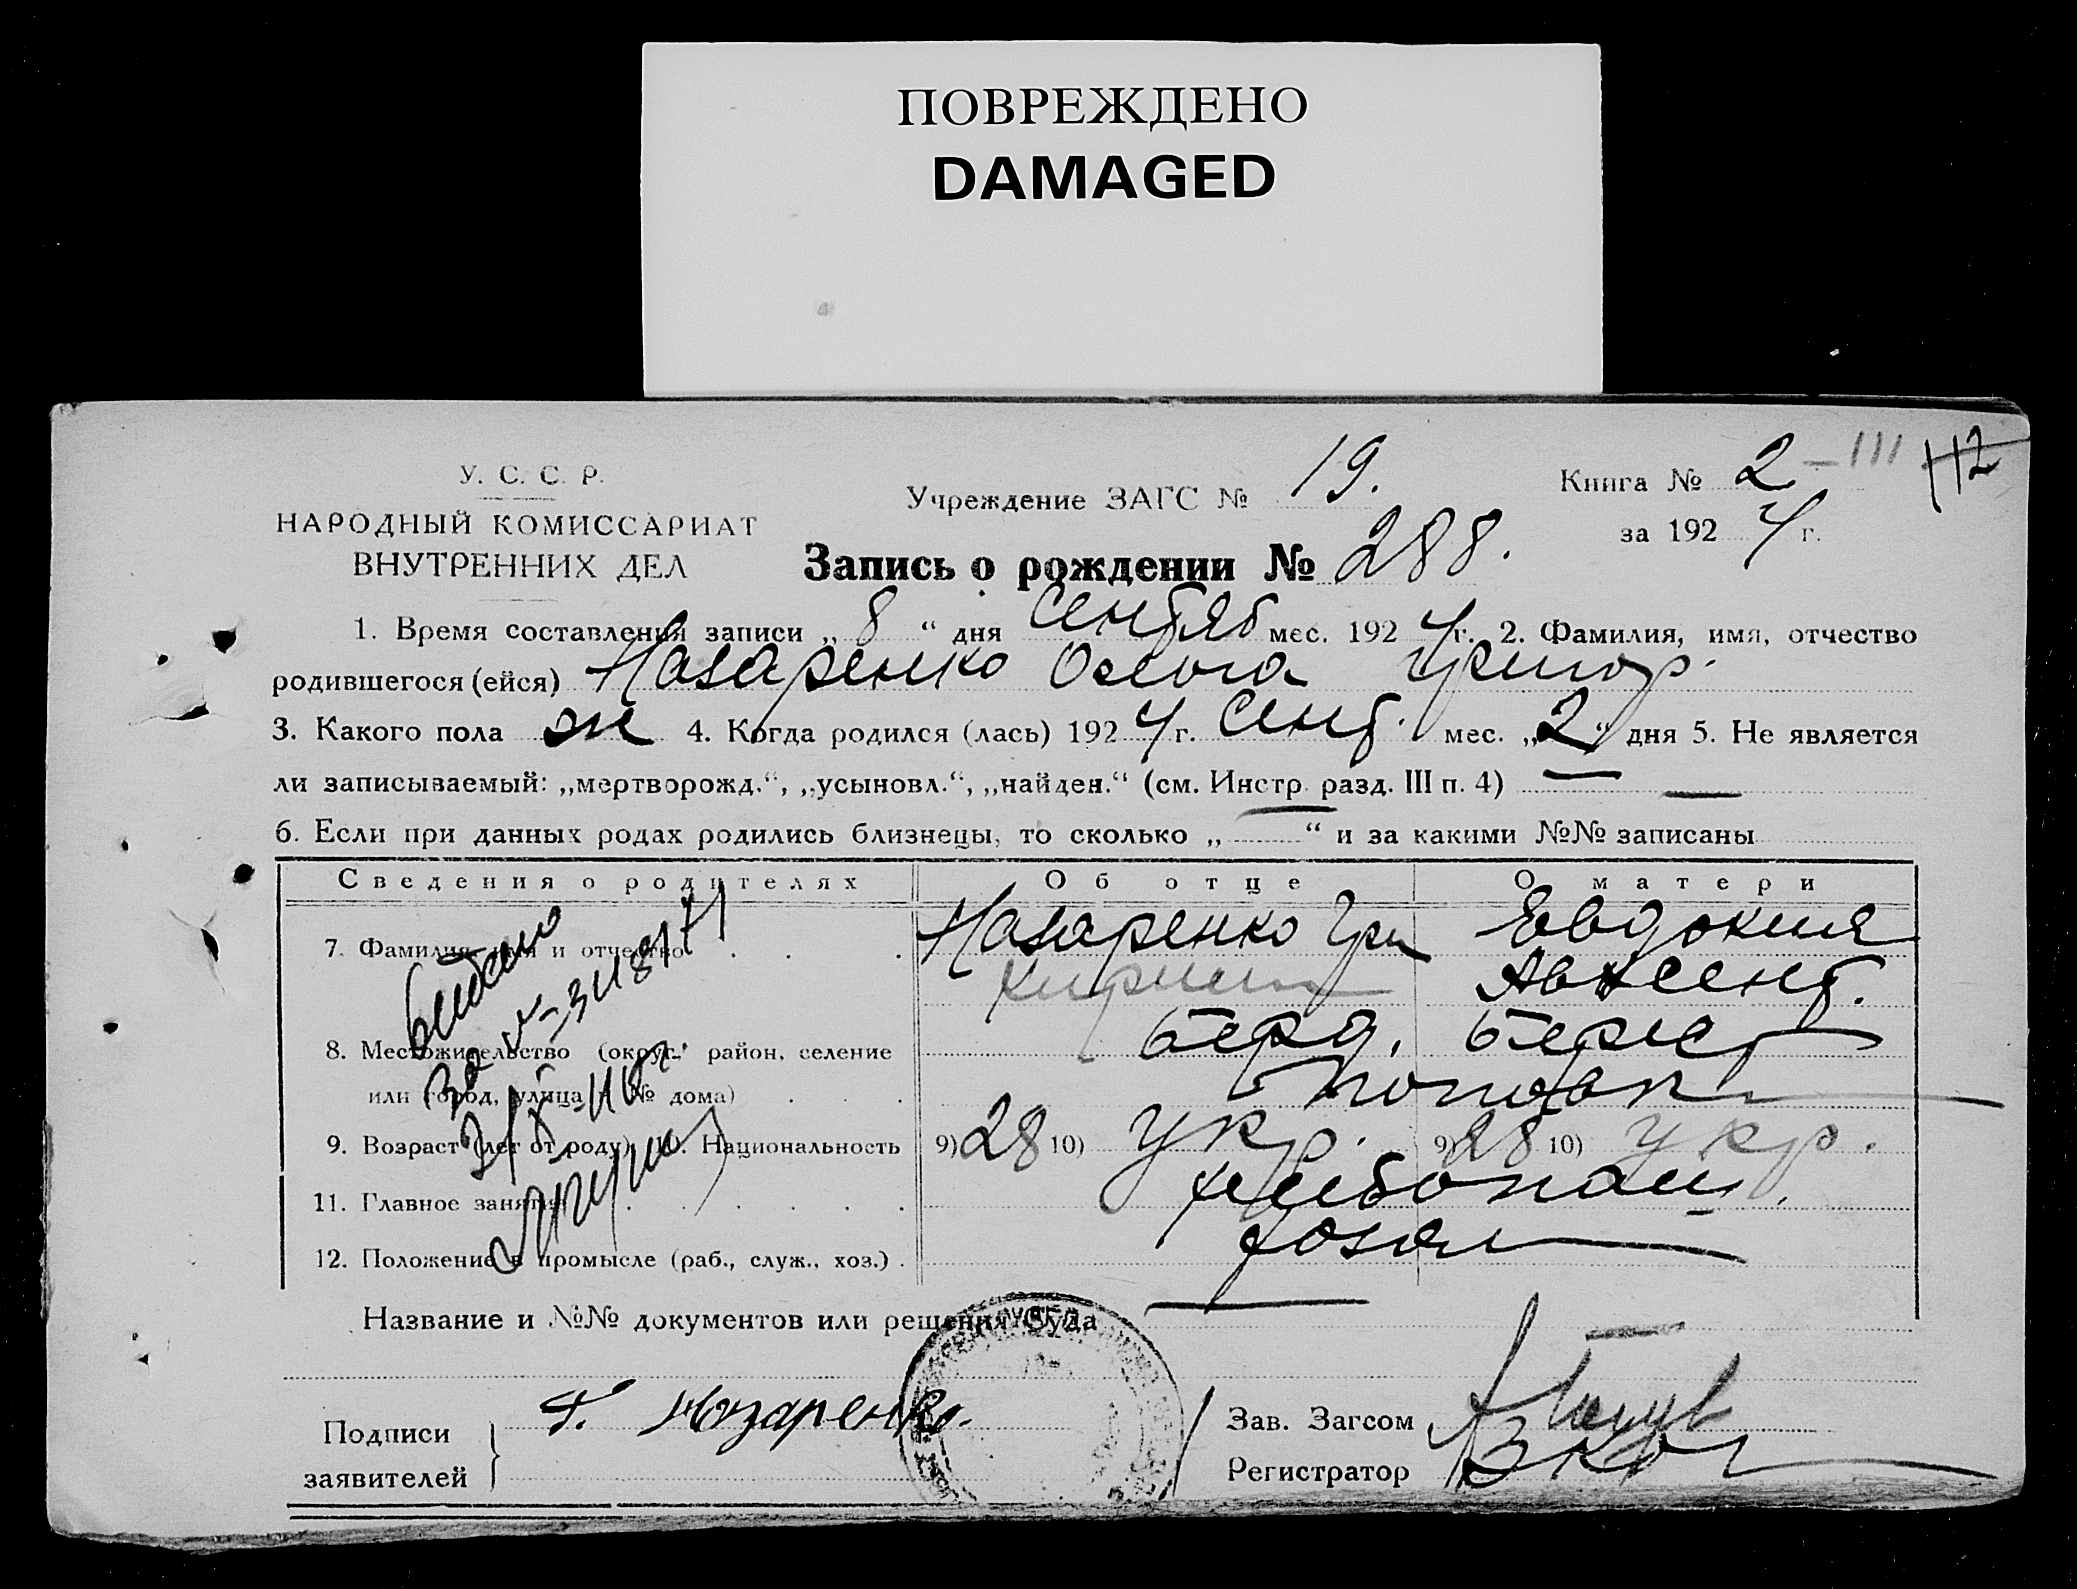 ПОВРЕЖДЕНО
DAMAGED
У. С. С. Р.
НАРОДНЫЙ КОМИССАРИАТ
ВНУТРЕННИХ ДЕЛ
Учреждение ЗАГС № 19.
Книга № 2 – III 112
за 1924 г.
Запись о рождении № 288.
1. Время составления записи „ 8 “ дня Сентяб мес. 1924 г. 2. Фамилия, имя, отчество
родившегося (ейся) Назаренко Ольга Григор.
3. Какого пола ж 4. Когда родился (лась) 1924 г. Сент. мес. „ 2 “ дня 5. Не является
ли записываемый: „мертворожд.“, „усыновл.“, „найден.“ (см. Инстр. разд. III п. 4) — —
6. Если при данных родах родились близнецы, то сколько „ — “ и за какими №№ записаны
Сведения о родителях Об отце О матери
7. Фамилия, имя и отчество . . . Назаренко Гри Евдокия
Авксент.
8. Местожительство (округ, район, селение Берд. Берест
или город, улица и № дома) . . .
9. Возраст (лет от роду) 10. Национальность 9) 28 10) Укр. 9) 28 10) Укр.
11. Главное занятие . . . . . . хлебопаш.
12. Положение в промысле (раб., служ., хоз.) . хозя
Название и №№ документов или решения Суда —
Подписи
заявителей
Г. Назаренко.
Зав. Загсом
Регистратор